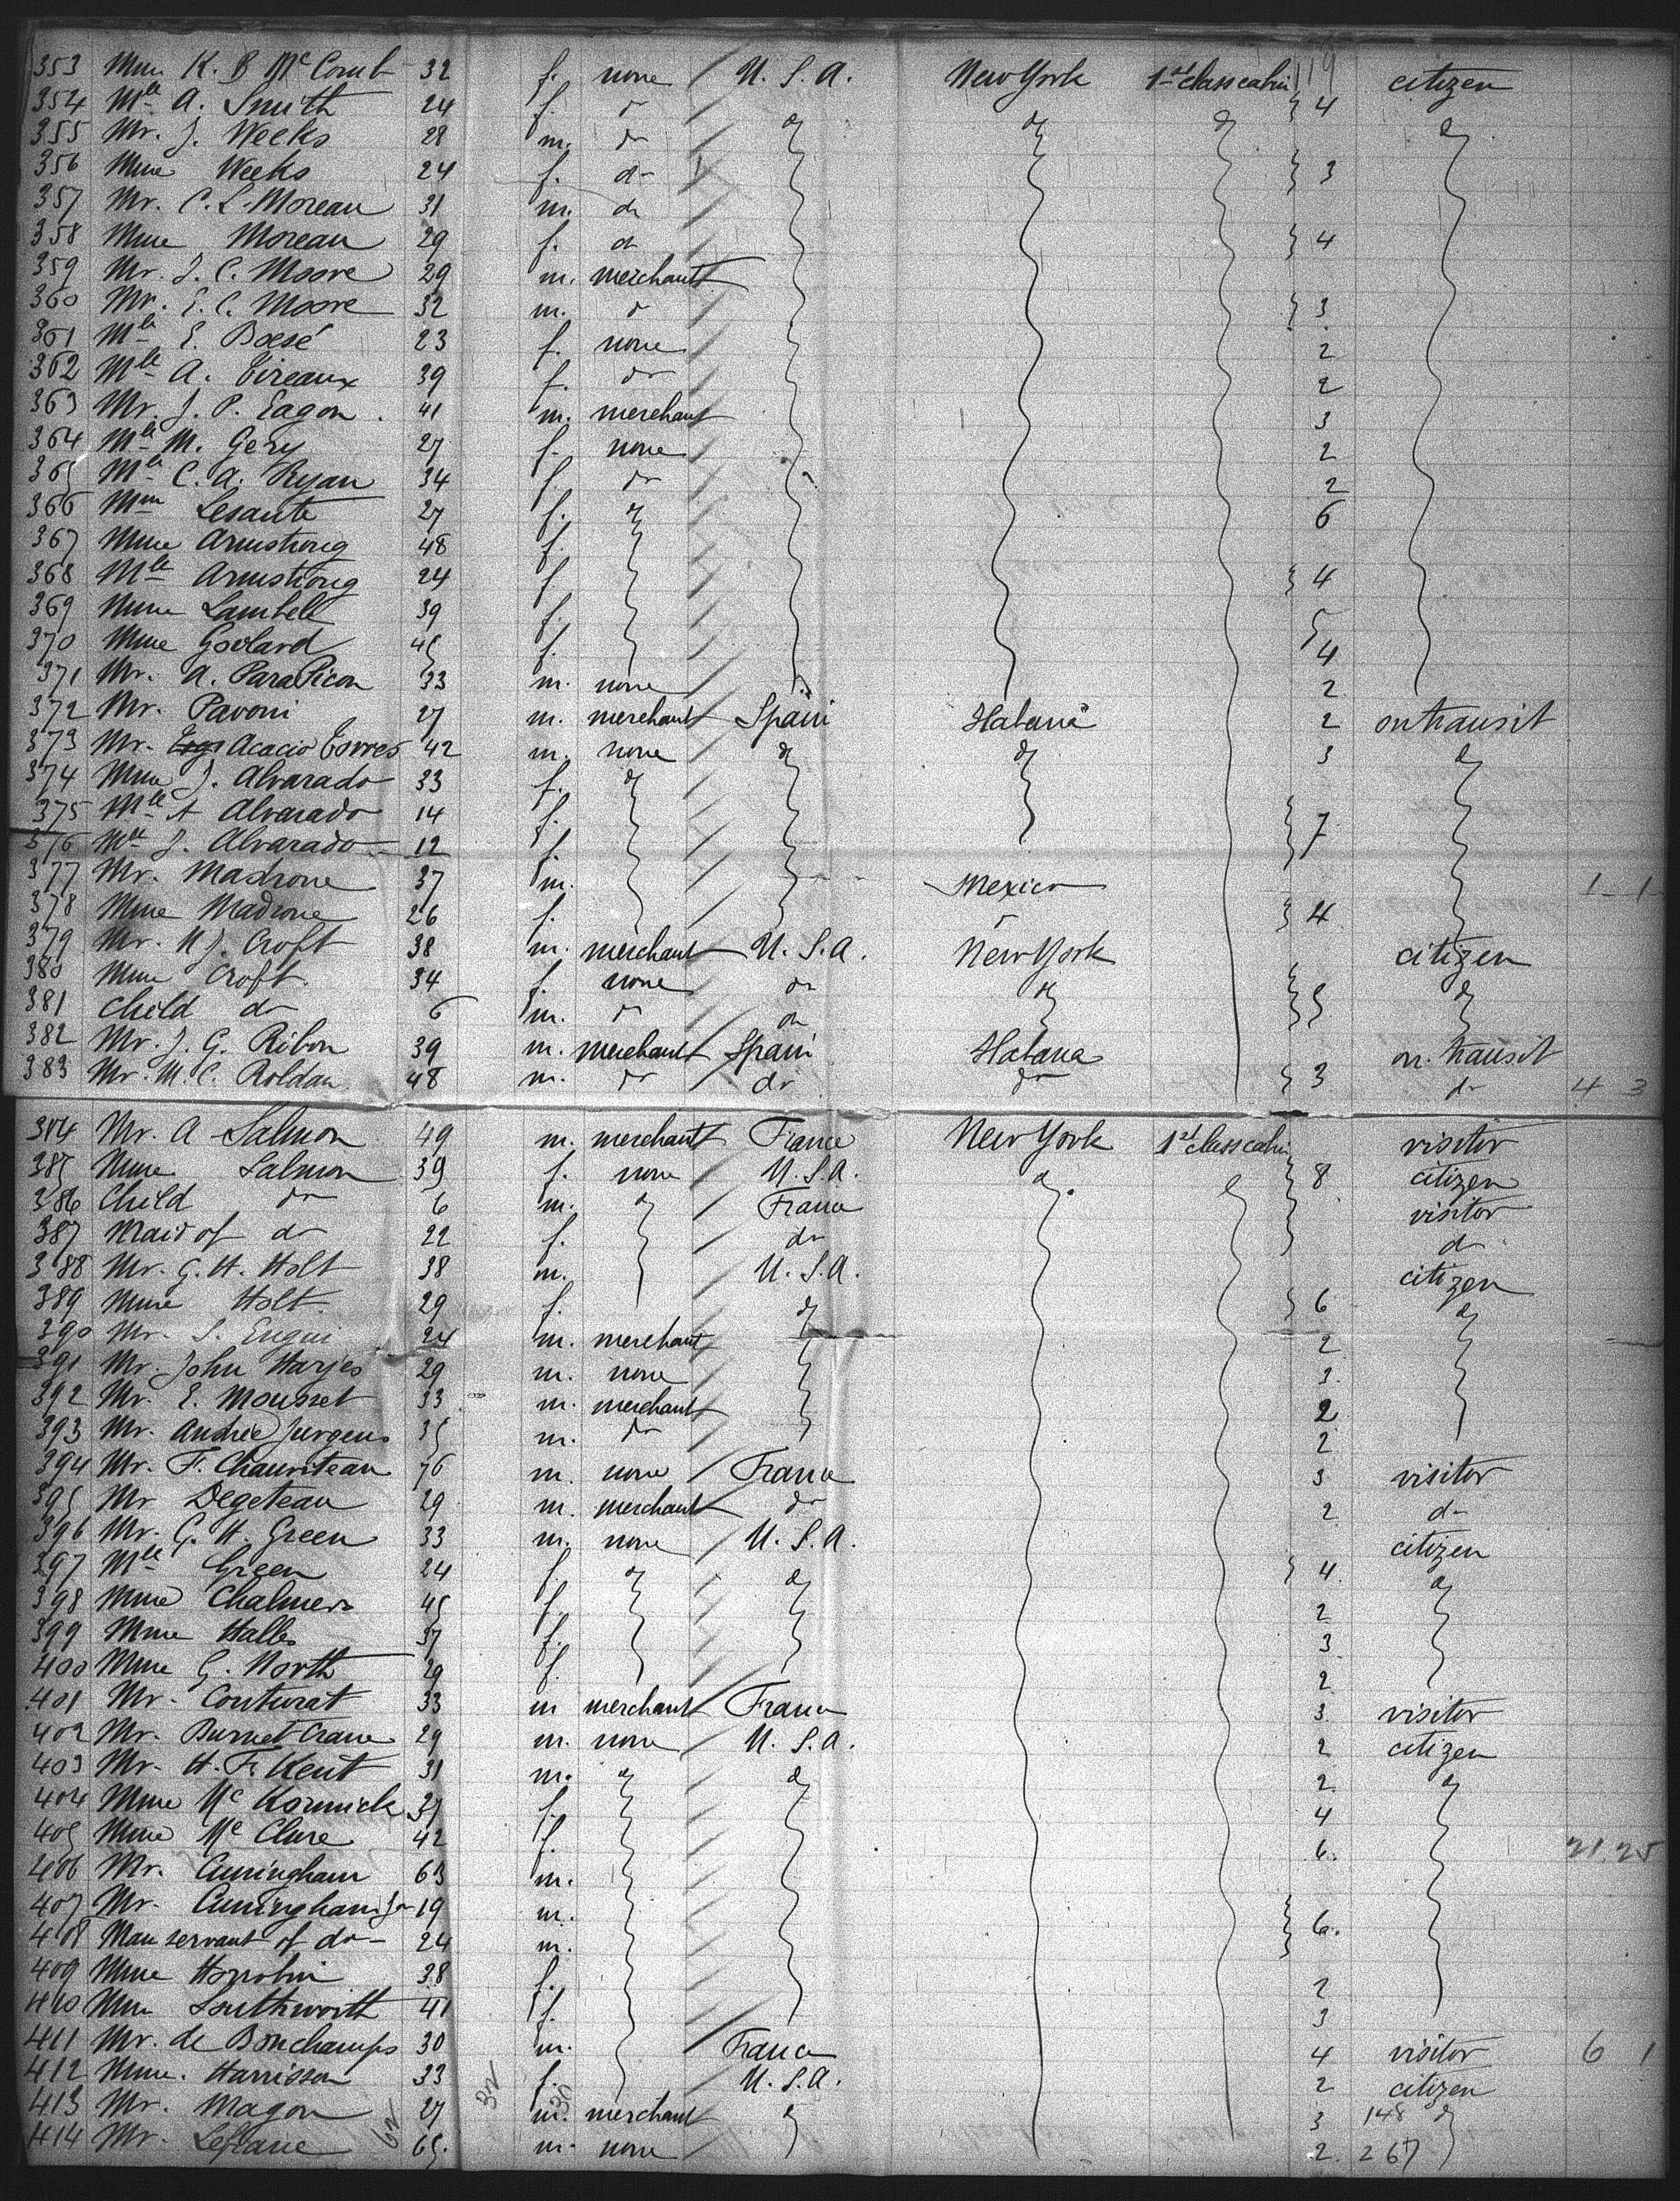 353 Mme K. B McComb 32 f. none / U. S. A. New York 1st class cabin 119 citizen
354 Mlle A. Smith 24 f. do } 4
355 Mr. J. Weeks 28 m. do do do do do
356 Mme Weeks 24 f. do } 3
357 Mr. C. L. Moreau 31 m. do
358 Mme Moreau 29 f. do } 4
359 Mr. J. C. Moore 29 m. merchant
360 Mr. E. C. Moore 32 m. do } 3
361 Mlle E. Boesé 23 f. none 2
362 Mlle A. Eireaux 39 f. do 2
363 Mr. J. P. Eagon 41 m. merchant 3
364 Mlle M. Gery 27 f. none 2
365 Mlle C. A. Ryan 34 f. do 2
366 Mme Lesaute 27 f. do 6
367 Mme Armstrong 48 f.
368 Mlle Armstrong 24 f } 4
369 Mme Lambell 39 f.
370 Mme Godard 45 f. 4
371 Mr. A. Para Picon 33 m. none 2
372 Mr. Pavoni 27 m. merchant Spain Habana 2 on transit
373 Mr. Acacio Torres 42 m. none do do 3 do
374 Mme J. Alvarado 33 f. do
375 Mlle A Alvarado 14 f. } 7
376 Mlle J. Alvarado 12 f
377 Mr. Madrone 37 m. Mexico 1 - 1
378 Mme Madrone 26 f. } 4
379 Mr. N J. Croft 38 m. merchant U. S. A. New York citizen
380 Mme Croft 34 f. none do do do
381 Child do 6 m. do do } 5
382 Mr. J. G. Ribon 39 m. merchant Spain Habana on transit
383 Mr. M. C. Roldan 48 m. do do do } 3 do 4 3
384 Mr. A Salmon 49 m. merchant France New York 1st class cabin visitor
385 Mme Salmon 39 f. none U. S. A. do do 8 citizen
386 Child do 6 m. do France visitor
387 Maid of do 22 f. do do
388 Mr. G. H. Holt 38 m. U. S. A. citizen
389 Mme Holt 29 f. do } 6 do
390 Mr. S. Engui 24 m. merchant 2
391 Mr. John Harjes 29 m. none 3
392 Mr. E. Mousset 33 m. merchant 2
393 Mr. Andrée Jurgens 35 m. do 2
394 Mr. F. Chauviteau 76 m. none / France 3 visitor
395 Mr Degeteau 29 m. merchant do 2 do
396 Mr. G. H. Green 33 m. none / U. S. A. citizen
397 Mlle Green 24 f. do do } 4 do
398 Mme Chalmers 45 f. 2
399 Mme Halls 37 f. 3
400 Mme G. North 29 f. 2
401 Mr. Couturat 33 m merchant France 3 visitor
402 Mr. Burnet Crane 29 m. none U. S. A. 2 citizen
403 Mr. H. F. Kent 31 m. do do 2 do
404 Mme McKormick 37 f. 4
405 Mme McClure 42 f. 6. 21. 25
406 Mr. Cuningham 63 m.
407 Mr. Cuningham Jr 19 m. } 6.
408 Man servant of do 24 m.
409 Mme Horrobin 38 f. 2
410 Mme Southworth 41 f. 3
411 Mr. de Bonchamps 30 m. France 4 visitor 6 1
412 Mme. Harrisson 33 f. U. S. A. 2 citizen
413 Mr. Magon 27 m. merchant do 3 148 do
414 Mr. Lefrane 65. m. none 2. 267